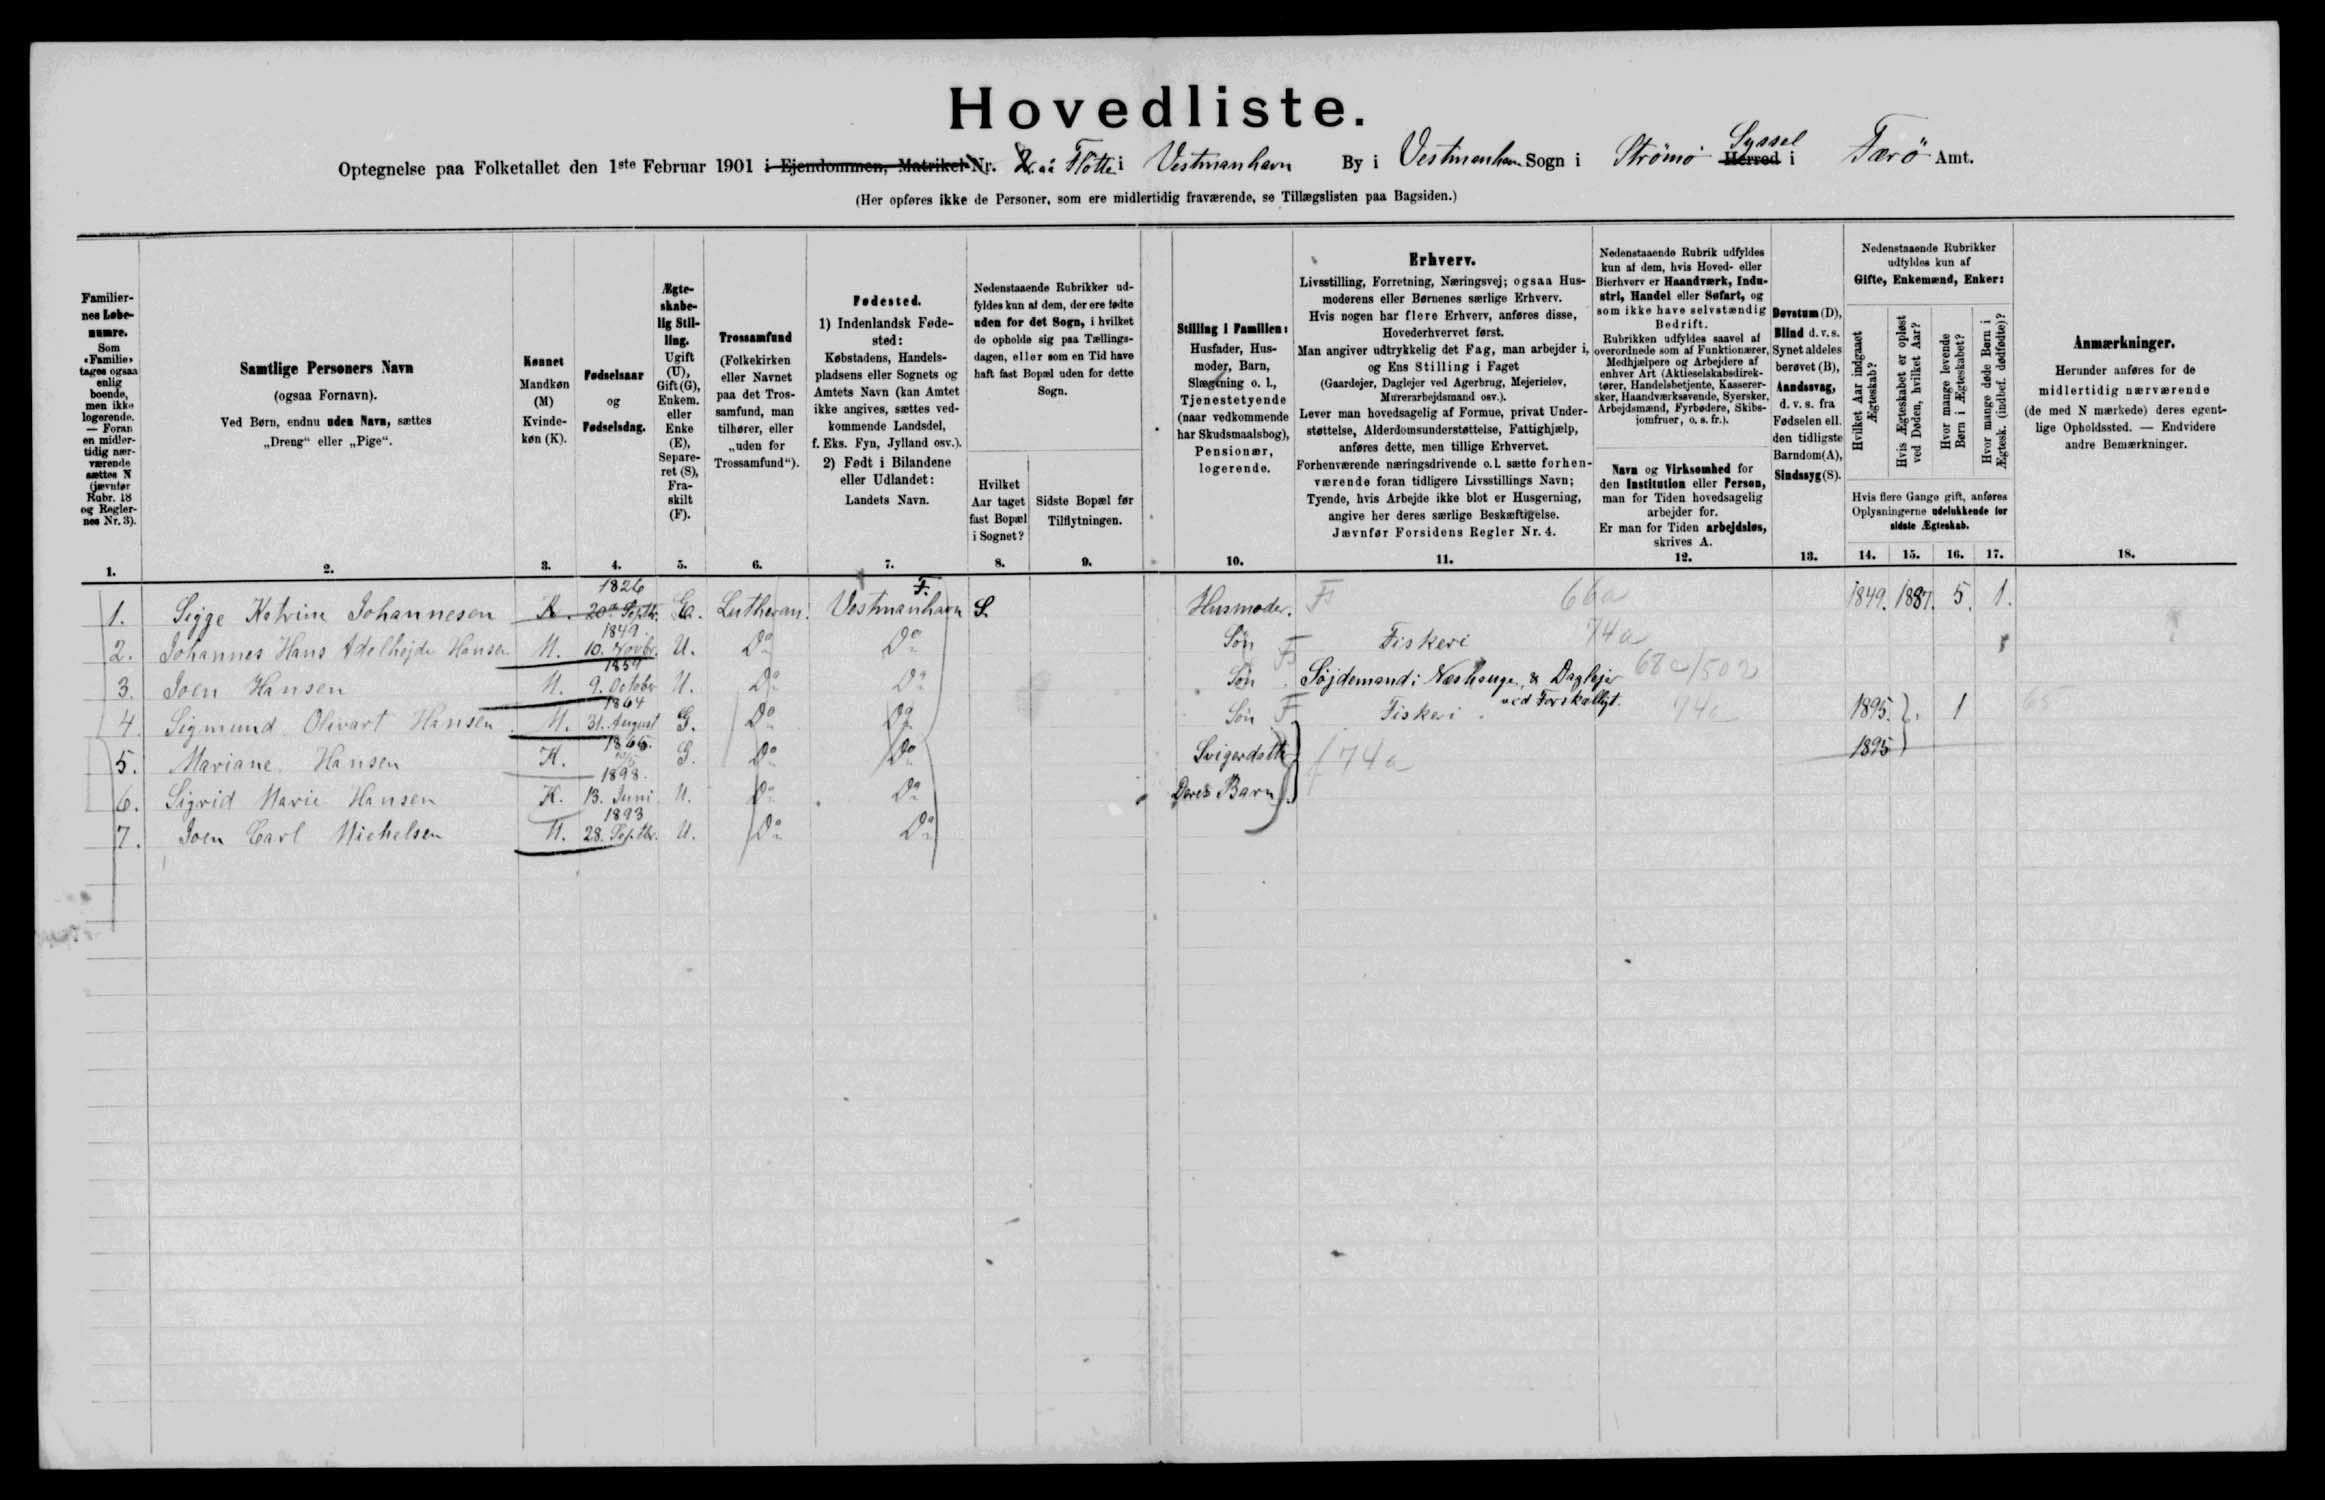 Hovedliste.
Optegnelse paa Folketallet den 1ste Februar 1901 i Ejendommen, Matrikel-Nr. paa Flötte i Vestmanhavn By i Vestmanhavn Sogn i Strömö Herred Syssel i Færö Amt.
(Her opføres ikke de Personer, som ere midlertidig fraværende, se Tillægslisten paa Bagsiden.)
Familier-
nes Løbe-
numre.
Som
«Familie»
tages ogsaa
enlig
boende,
men ikke
logerende.
— Foran
en midler-
tidig nær-
værende
sættes N
(jævnfør
Rubr. 18
og Regler-
nes Nr. 3).
1.
Samtlige Personers Navn
(ogsaa Fornavn).
Ved Børn, endnu uden Navn, sættes
„Dreng“ eller „Pige“.
2.
Kønnet
Mandkøn
(M)
Kvinde-
køn (K).
3.
Fødselsaar
og
Fødselsdag.
4.
Ægte-
skabe-
lig Stil-
ling.
Ugift
(U),
Gift (G),
Enkem.
eller
Enke
(E),
Separe-
ret (S),
Fra-
skilt
(F).
5.
Trossamfund
(Folkekirken
eller Navnet
paa det Tros-
samfund, man
tilhører, eller
„uden for
Trossamfund“).
6.
Fødested.
1) Indenlandsk Føde-
sted:
Købstadens, Handels-
pladsens eller Sognets og
Amtets Navn (kan Amtet
ikke angives, sættes ved-
kommende Landsdel,
f. Eks. Fyn, Jylland osv.).
2) Født i Bilandene
eller Udlandet:
Landets Navn.
7.
Nedenstaaende Rubrikker ud-
fyldes kun af dem, der ere fødte
uden for det Sogn, i hvilket
de opholde sig paa Tællings-
dagen, eller som en Tid have
haft fast Bopæl uden for dette
Sogn.
Hvilket
Aar taget
fast Bopæl
i Sognet?
8.
Sidste Bopæl før
Tilflytningen.
9.
Stilling i Familien:
Husfader, Hus-
moder, Barn,
Slægtning o. l.,
Tjenestetyende
(naar vedkommende
har Skudsmaalsbog),
Pensionær,
logerende.
10.
Erhverv.
Livsstilling, Forretning, Næringsvej; ogsaa Hus-
moderens eller Børnenes særlige Erhverv.
Hvis nogen har flere Erhverv, anføres disse,
Hovederhvervet først.
Man angiver udtrykkelig det Fag, man arbejder i,
og Ens Stilling i Faget
(Gaardejer, Daglejer ved Agerbrug, Mejerielev,
Murerarbejdsmand osv.).
Lever man hovedsagelig af Formue, privat Under-
støttelse, Alderdomsunderstøttelse, Fattighjælp,
anføres dette, men tillige Erhvervet.
Forhenværende næringsdrivende o. l. sætte forhen-
værende foran tidligere Livsstillings Navn;
Tyende, hvis Arbejde ikke blot er Husgerning,
angive her deres særlige Beskæftigelse.
Jævnfør Forsidens Regler Nr. 4.
11.
Nedenstaaende Rubrik udfyldes
kun af dem, hvis Hoved- eller
Bierhverv er Haandværk, Indu-
stri, Handel eller Søfart, og
som ikke have selvstændig
Bedrift.
Rubrikken udfyldes saavel af
overordnede som af Funktionærer,
Medhjælpere og Arbejdere af
enhver Art (Aktieselskabsdirek-
tører, Handelsbetjente, Kasserer-
sker, Haandværkssvende, Syersker,
Arbejdsmænd, Fyrbødere, Skibs-
jomfruer, o. s. fr.).
Navn og Virksomhed for
den Institution eller Person,
man for Tiden hovedsagelig
arbejder for.
Er man for Tiden arbejdsløs,
skrives A.
12.
Døvstum (D),
Blind d. v. s.
Synet aldeles
berøvet (B),
Aandssvag,
d. v. s. fra
Fødselen ell.
den tidligste
Barndom (A),
Sindssyg (S).
13.
Nedenstaaende Rubrikker
udfyldes kun af
Gifte, Enkemænd, Enker:
Hvilket Aar indgaaet
Ægteskab?
Hvis Ægteskabet er opløst
ved Døden, hvilket Aar?
Hvor mange levende
Børn i Ægteskabet?
Hvor mange døde Børn i
Ægtesk. (indbef. dødfødte)?
Hvis flere Gange gift, anføres
Oplysningerne udelukkende for
sidste Ægteskab.
14. 15. 16. 17.
Anmærkninger.
Herunder anføres for de
midlertidig nærværende
(de med N mærkede) deres egent-
lige Opholdssted. — Endvidere
andre Bemærkninger.
18.
1. Sigge Katrine Johannesen K. 1826 20de Septbr. Ea. Lutheran. Vestmanhavn F. S. Husmoder. Fs 66a 1849. 1887. 5. 1.
2. Johannes Hans Adelhejde Hansen M. 1849 10. Novbr. U. Do Do Søn F Fiskeri 74a
3. Joen Hansen M. 1857 9. October U. Do Do Søn Fs Søjdemand i Næshauge, & Daglejer ved Forskelligt. 68c/502
4. Sigmund Olivart Hansen M. 1864 31. August G. Do Do Søn F Fiskeri. 74a 1895. 1
5. Mariane Hansen K. 1866. G. Do Do Svigerdatter 74a 1895
6. Sigrid Marie Hansen K. 1898. 13. Juni U. Do Do Deres Barn
7. Joen Carl Michelsen M. 1893 28. Septbr. U. Do Do